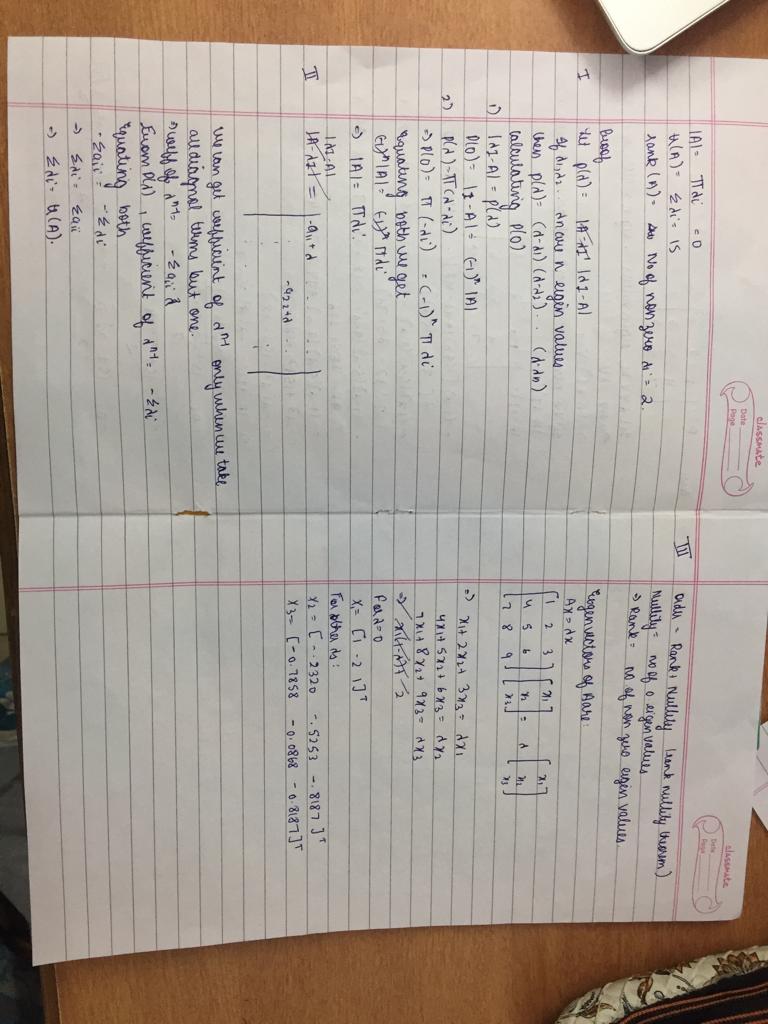 classmate
Date
Page
|A| = πλi = 0
tr(A) = Σλi = 15
rank(A) = No of non zero λi = 2.
Proof
I let p(λ) = |A-λI| |λI-A|
if λ1, λ2 .. λn are n eigen values
then p(λ) = (λ-λ1) (λ-λ2) . . . (λ-λn)
calculating p(0)
1) |λI-A| = p(λ)
p(0) = |-A| = (-1)ⁿ |A|
2) p(λ) = π(λ-λi)
⇒ p(0) = π (-λi) = (-1)ⁿ π λi
equating both we get
(-1)ⁿ |A| = (-1)ⁿ πλi
⇒ |A| = πλi
|λI-A|
II |A-λI| = | -a11+λ . . . .
-a22+λ . . .
we can get coefficient of λⁿ⁻¹ only when we take
all diagnol terms but one.
⇒ coeff of λⁿ⁻¹ = -Σaii
From p(λ), coefficient of λⁿ⁻¹ = -Σλi
Equating both
-Σaii = -Σλi
⇒ Σλi = Σaii
⇒ Σλi = tr(A).
classmate
Date
Page
III order = Rank + Nullity (rank nullity theorem)
Nullity = no of 0 eigen values
⇒ Rank = no of non zero eigen values.
Eigenvectors of A are:
Ax = λx
[1 2 3] [x1] = λ [x1]
[4 5 6] [x2] [x2]
[7 8 9] [x3] [x3]
⇒ x1 + 2x2 + 3x3 = λx1
4x1 + 5x2 + 6x3 = λx2
7x1 + 8x2 + 9x3 = λx3
For λ=0
x1 = [1 -2 1]ᵀ
For other λs:
x2 = [-.2320 -.5253 -.8187]ᵀ
x3 = [-0.7858 -0.0868 -0.8187]ᵀ